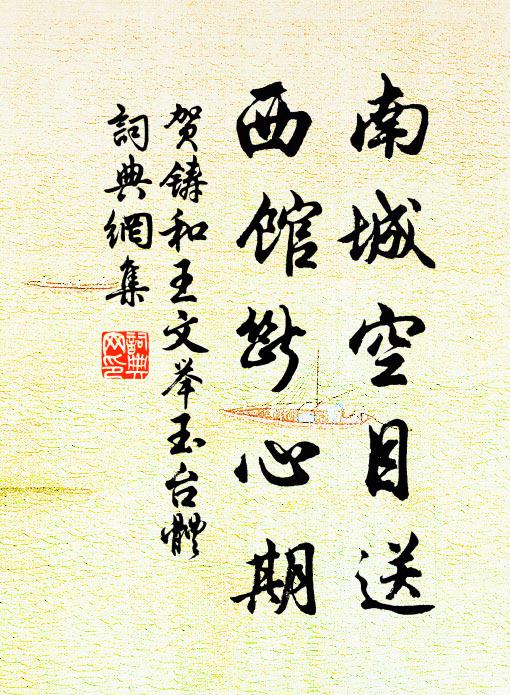 南城空目送
西馆断心期
贺鑄和王文举玉台體
詞典網集
詞典
网印